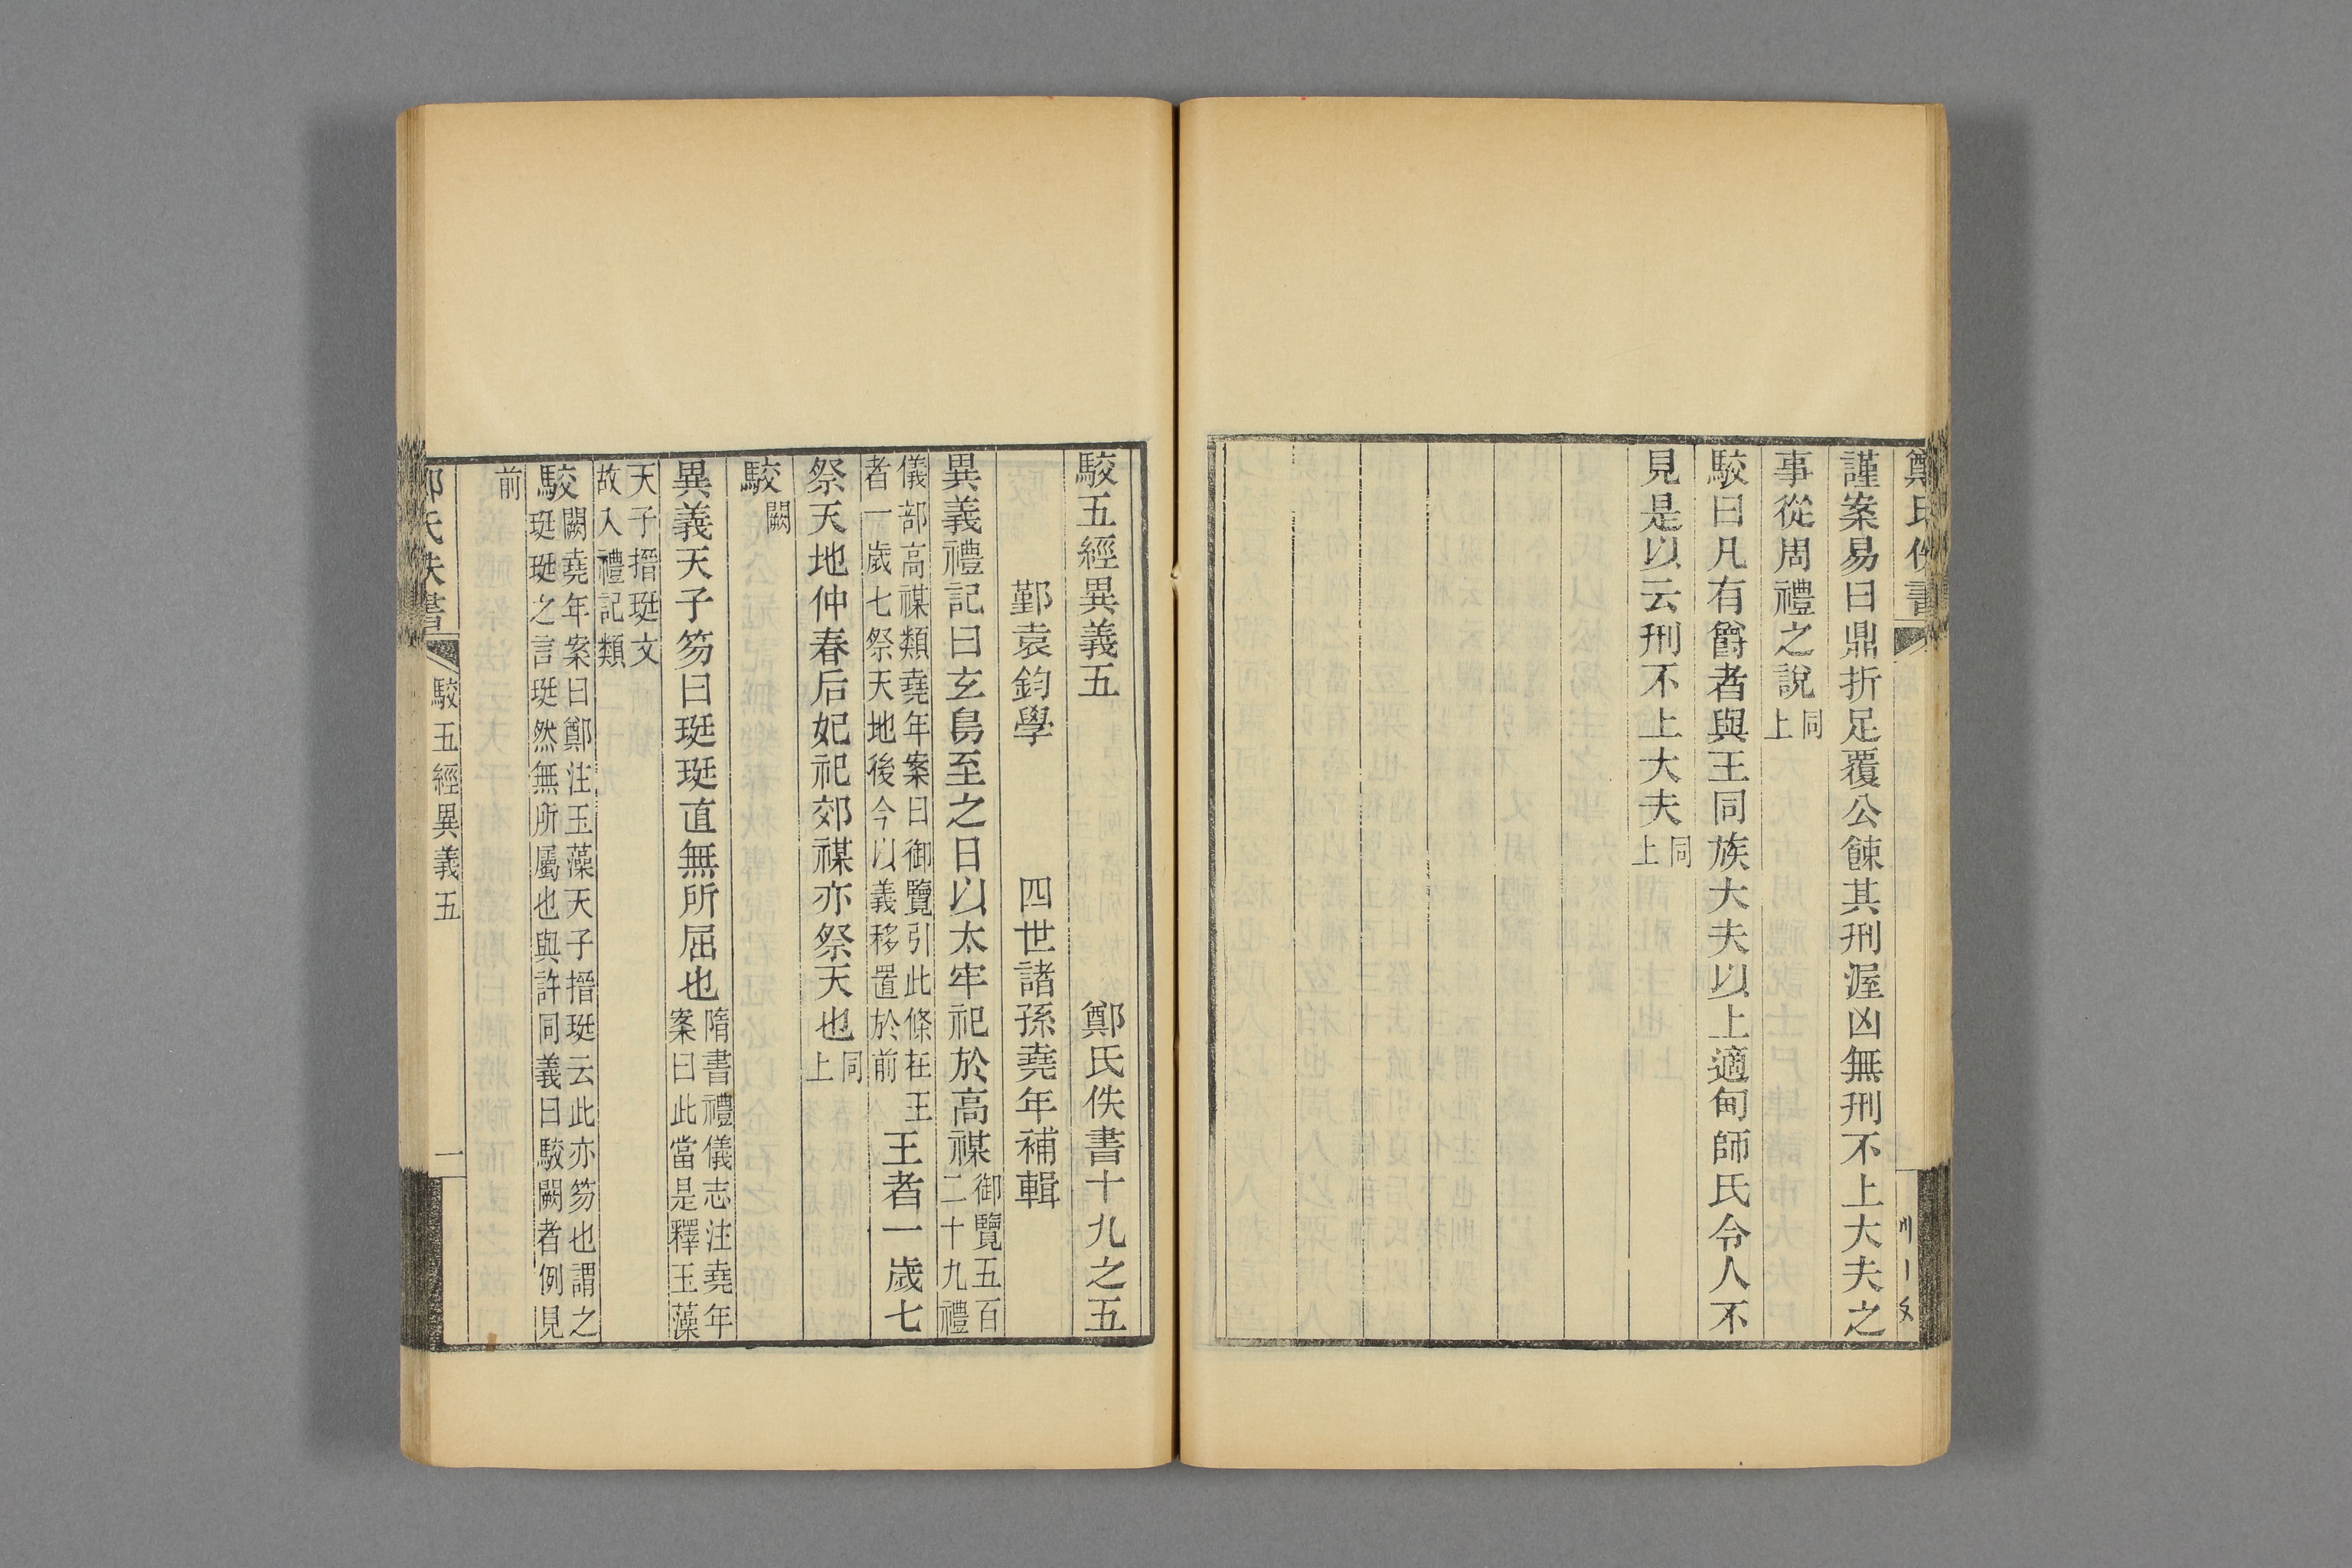 鄭氏佚書
謹案易曰鼎折足覆公餗其刑渥凶無刑不上大夫之
事從周禮之說同上
駮曰凡有爵者與王同族大夫以上適甸師氏令人不
見是以云刑不上大夫同上
駮五經異義五 鄭氏佚書十九之五
鄞袁鈞學 四世諸孫堯年補輯
異義禮記曰玄鳥至之日以太牢祀於高禖御覽五百二十九禮
儀部高禖類堯年案曰御覽引此條在王者一歲七祭天地後今以義移置於前王者一歲七
祭天地仲春后妃祀郊禖亦祭天也同上
駮闕
異義天子笏曰珽珽直無所屈也隋書禮儀志注堯年案曰此當是釋玉藻
天子搢珽文故入禮記類
駮闕堯年案曰鄭注玉藻天子搢珽云此亦笏也謂之珽珽之言珽然無所屬也與許同義曰駮闕者例見
前
氏佚書 駮五經異義五 一